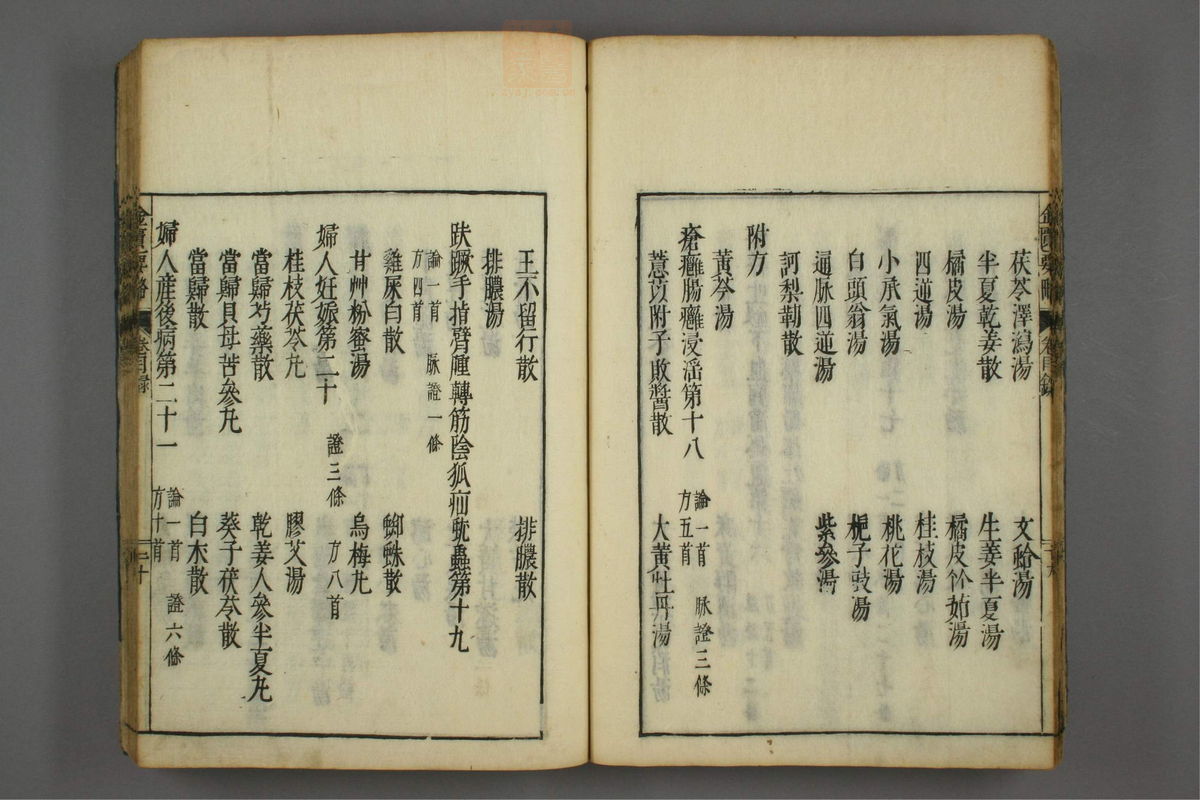 茯苓澤瀉湯　文蛤湯
半夏乾姜散　生姜半夏湯
橘皮湯　橘皮竹茹湯
四逆湯　桂枝湯
小承氣湯　桃花湯
白頭翁湯　梔子豉湯
通脉四逆湯　紫參湯
訶梨勒散
附方
黃芩湯
瘡癰腸癰浸淫第十八　論一首　脉證三條　方五首
薏苡附子敗醬散　大黃牡丹湯
王不留行散　排膿散
排膿湯
趺蹶手指臂腫轉筋陰狐疝蚘蟲第十九
論一首　脉證一條　方四首
雞屎白散　蜘蛛散
甘艸粉蜜湯　烏梅九
婦人妊娠第二十　證三條　方八首
桂枝茯苓九　膠艾湯
當歸芍藥散　乾姜人參半夏九
當歸貝母苦參九　葵子茯苓散
當歸散　白朮散
婦人産後病第二十一　論一首　證六條　方十首
金匱要略　目錄
二十